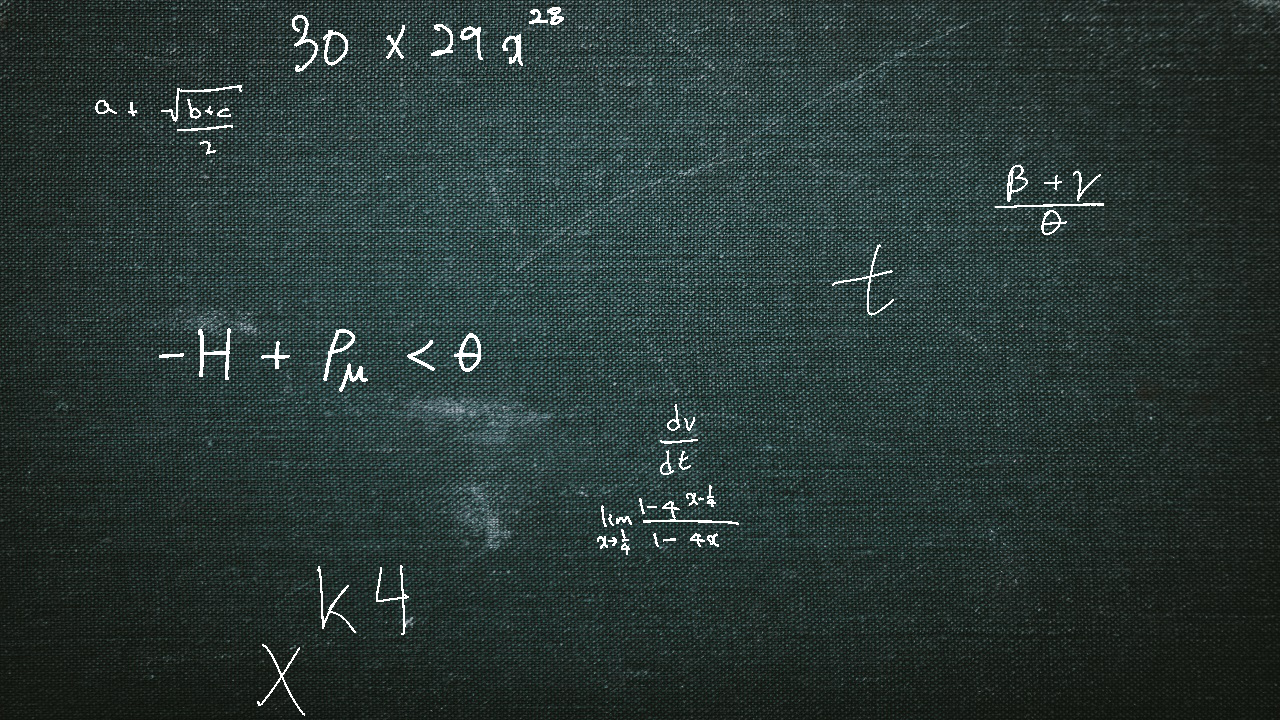 30 × 29x^28
a + √(b+c)/2
(β + γ)/θ
t
-H + P_μ < θ
dv/dt
lim x→1/4 (1-4^(x-1/4))/(1-4x)
k4
X